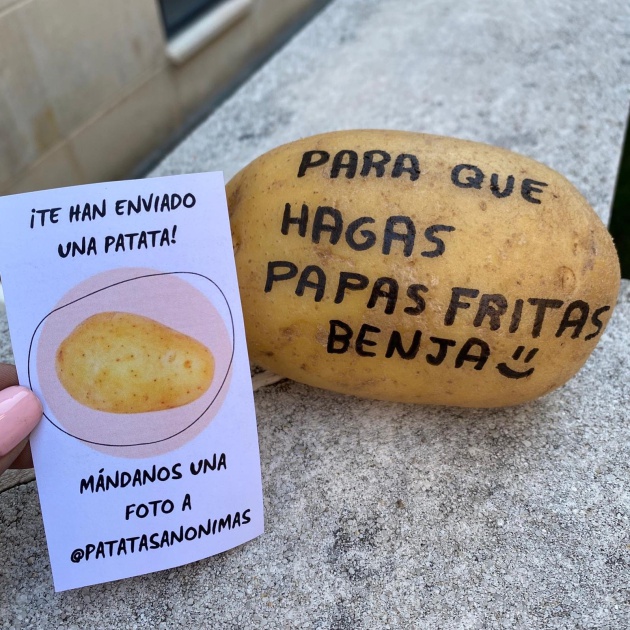 ¡TE HAN ENVIADO
UNA PATATA!
MÁNDANOS UNA
FOTO A
@PATATASANONIMAS
PARA QUE
HAGAS
PAPAS FRITAS
BENJA